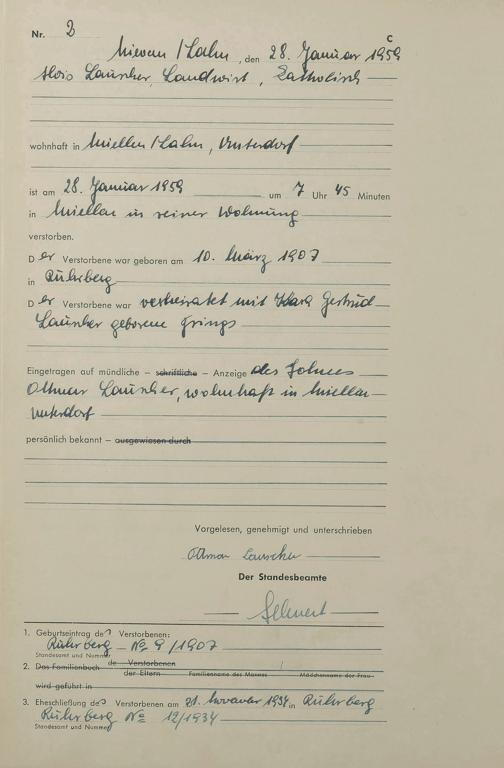 Nr. 2
C
Nievern / Lahn, den 28. Januar 1959
Alois Lauscher, Landwirt, Katholisch
wohnhaft in Miellen / Lahn, Unterdorf
ist am 28. Januar 1959 um 7 Uhr 45 Minuten
in Miellen in seiner Wohnung
verstorben.
Der Verstorbene war geboren am 10. März 1907
in Rührberg
Der Verstorbene war verheiratet mit Klara Gertrud
Lauscher geborene Frings
Eingetragen auf mündliche – schriftliche – Anzeige des Sohnes
Ottmar Lauscher, wohnhaft in Miellen –
Unterdorf
persönlich bekannt – ausgewiesen durch
Vorgelesen, genehmigt und unterschrieben
Ottmar Lauscher
Der Standesbeamte
1. Geburtseintrag des Verstorbenen:
Rührberg – No 9 / 1907
Standesamt und Nummer
2. Das Familienbuch de Verstorbenen
der Eltern Familienname des Mannes / Mädchenname der Frau
wird geführt in
3. Eheschließung des Verstorbenen am 21. November 1934 in Rührberg
Rührberg No 12/1934
Standesamt und Nummer